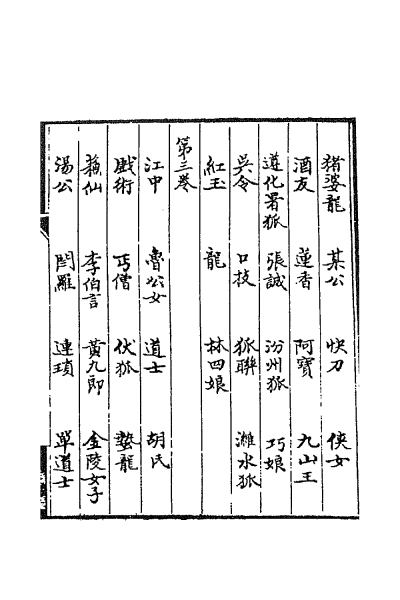 猪婆龍 某公 快刀 俠女
酒友 蓮香 阿寶 九山王
遵化署狐 張誠 汾州狐 巧娘
吳令 口技 狐聯 濰水狐
紅玉 龍 林四娘
第三卷
江中 魯公女 道士 胡氏
戲術 丐僧 伏狐 蟄龍
蘇仙 李伯言 黃九郎 金陵女子
湯公 閻羅 連瑣 單道士